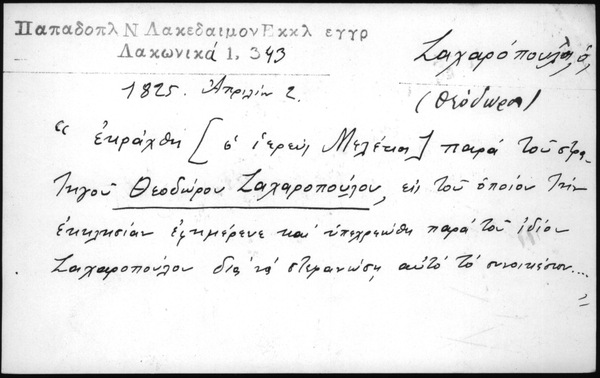 Παπαδοπλ Ν Λακεδαιμον Εκκλ εγγρ
Λακωνικά 1, 343
Ζαχαρόπουλος
1825. Ἀπριλίου 2.
(Θεόδωρος)
"ἐκράχθη [ὁ ἱερεὺς Μελέτιος] παρὰ τοῦ στρα
τηγοῦ Θεοδώρου Ζαχαροπούλου, εἰς τοῦ ὁποίου τὴν
ἐκκλησίαν ἐφημέρευε καὶ ὑπεχρεώθη παρὰ τοῦ ἰδίου
Ζαχαροπούλου διὰ νὰ στεφανώσῃ αὐτὸ τὸ συνοικέσιον....
"